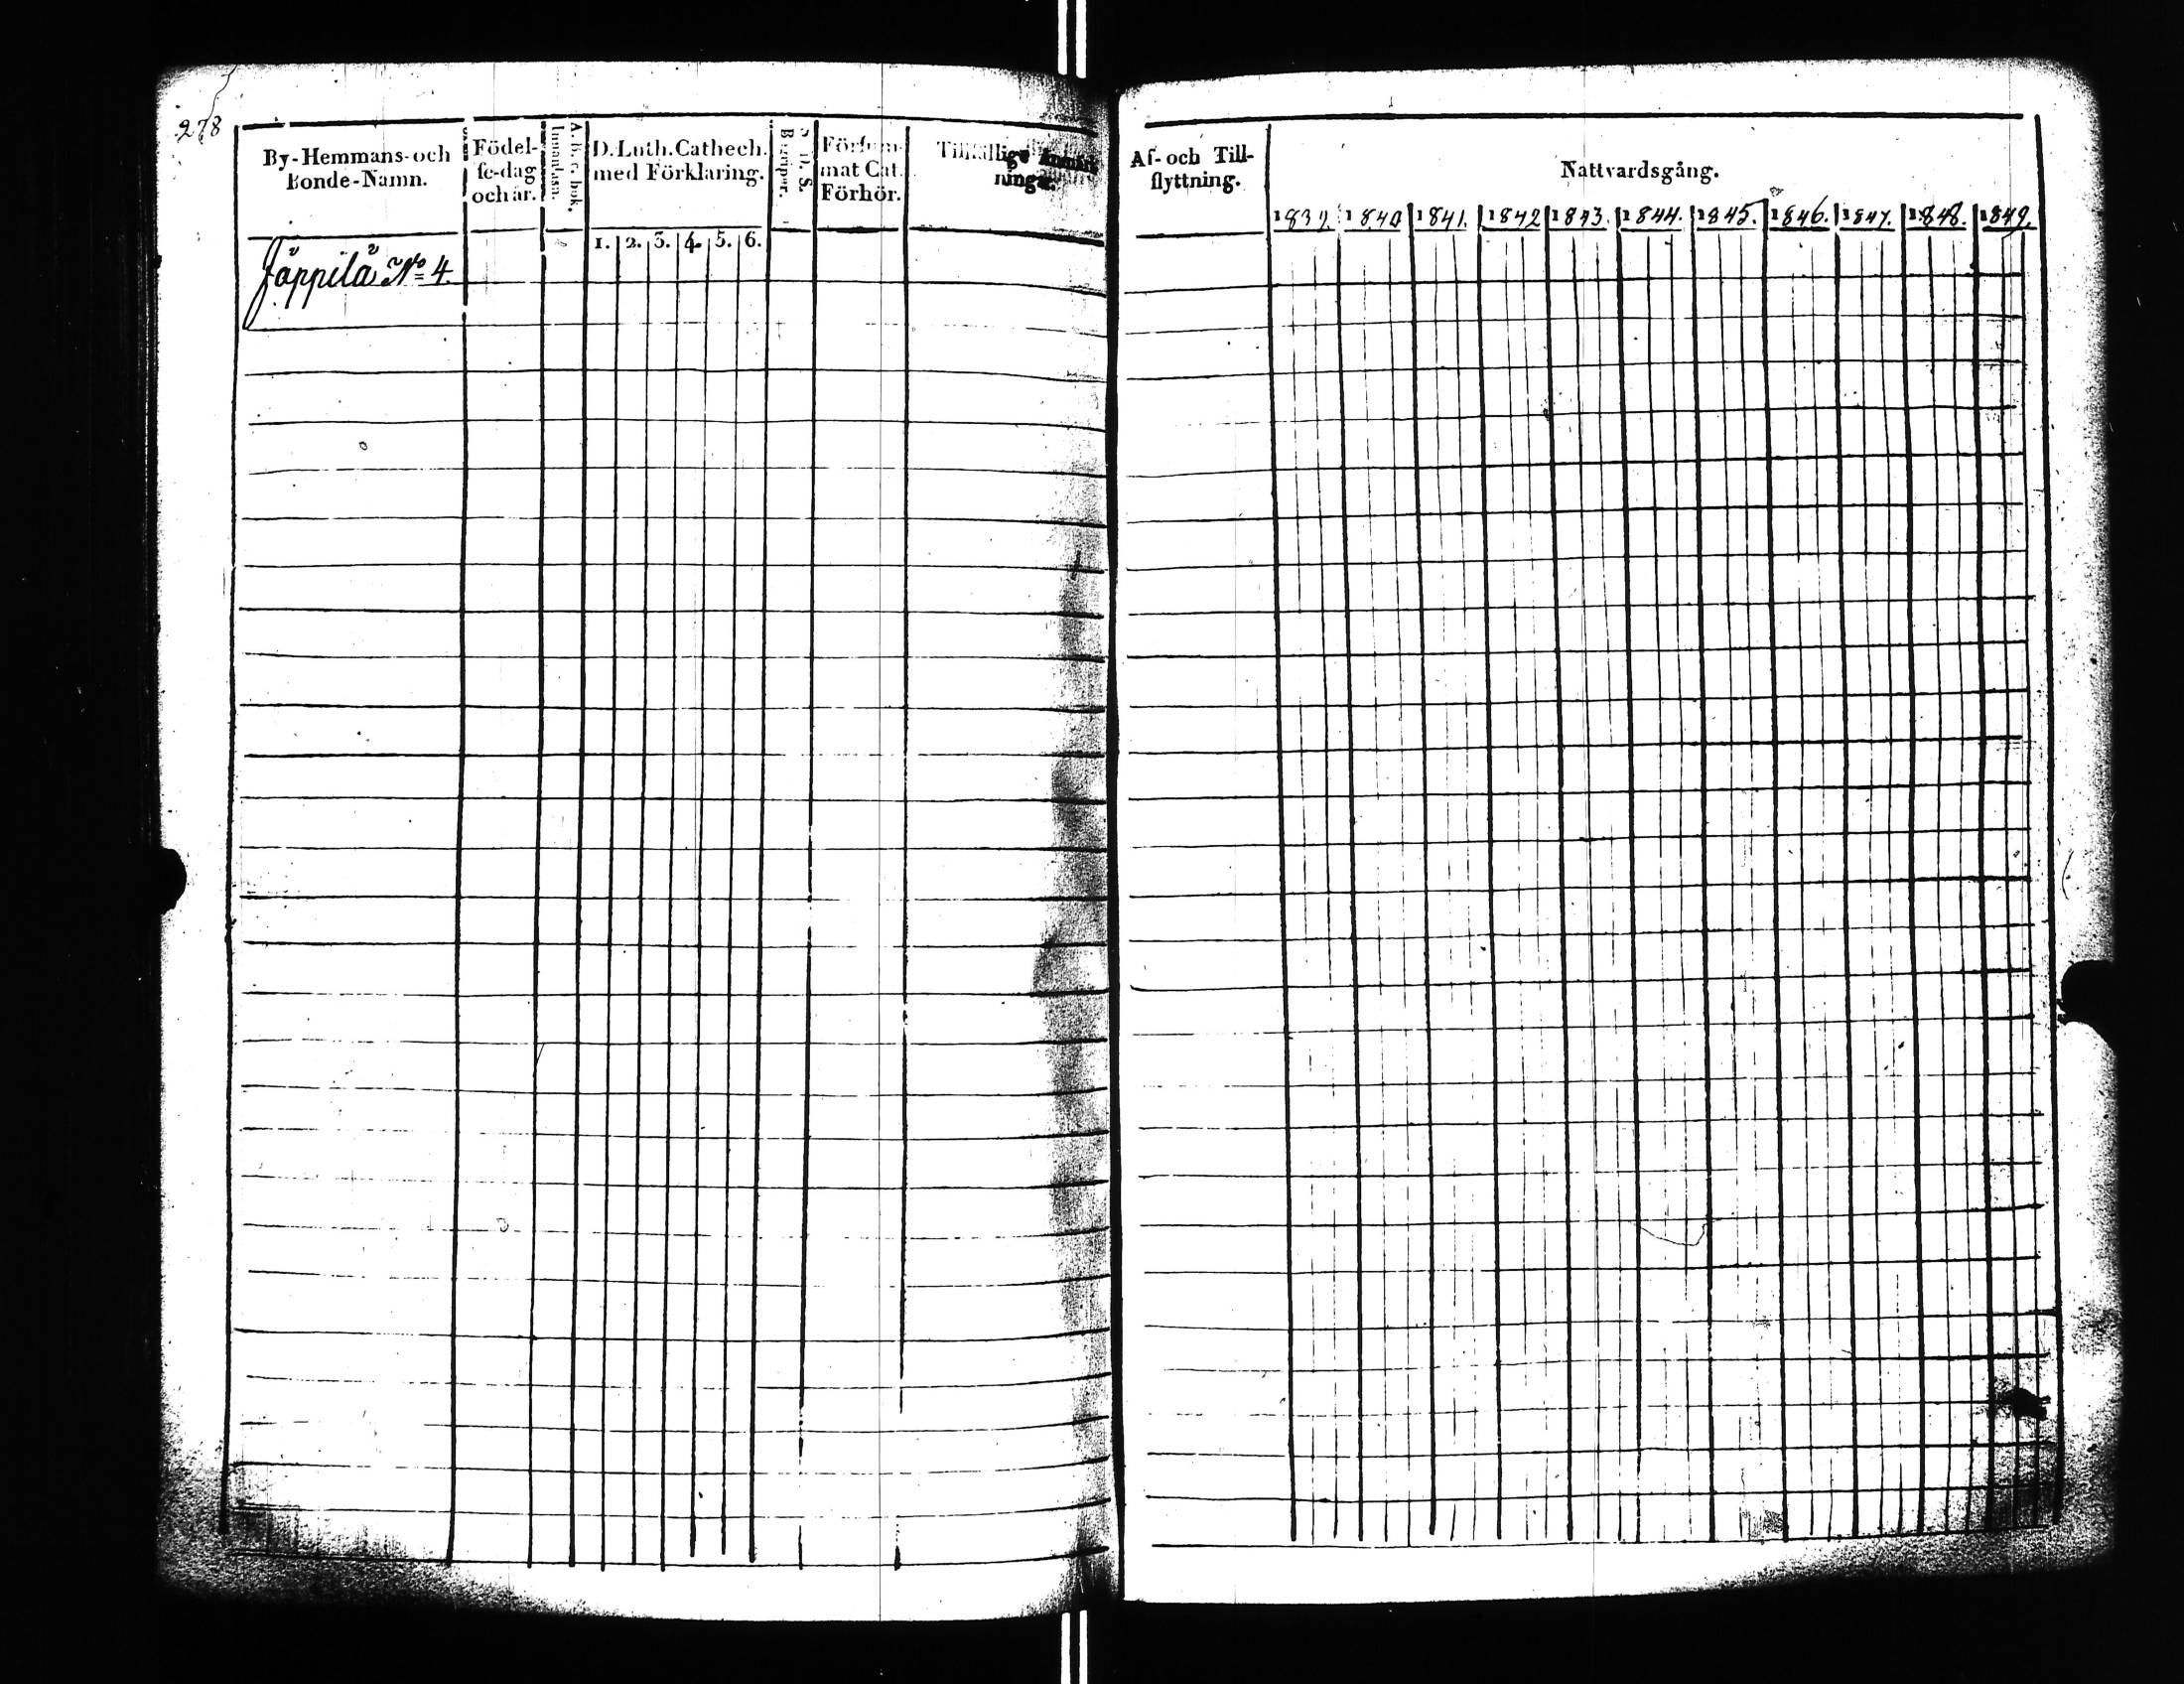 278
By-Hemmans- och
Bonde-Namn.
Födel-
se-dag
och år.
A. b. c. bok.
Innanläsn.
D. Luth. Cathech.
med Förklaring.
1. 2. 3. 4. 5. 6.
D. S.
Begriper.
Försum-
mat Cat.
Förhör.
Tillfällige Anmärk
ningar.
Jäppilä No 4.
Af- och Till-
flyttning.
Nattvardsgång.
1839. 1840 1841. 1842 1843. 1844. 1845. 1846. 1847. 1848. 1849.